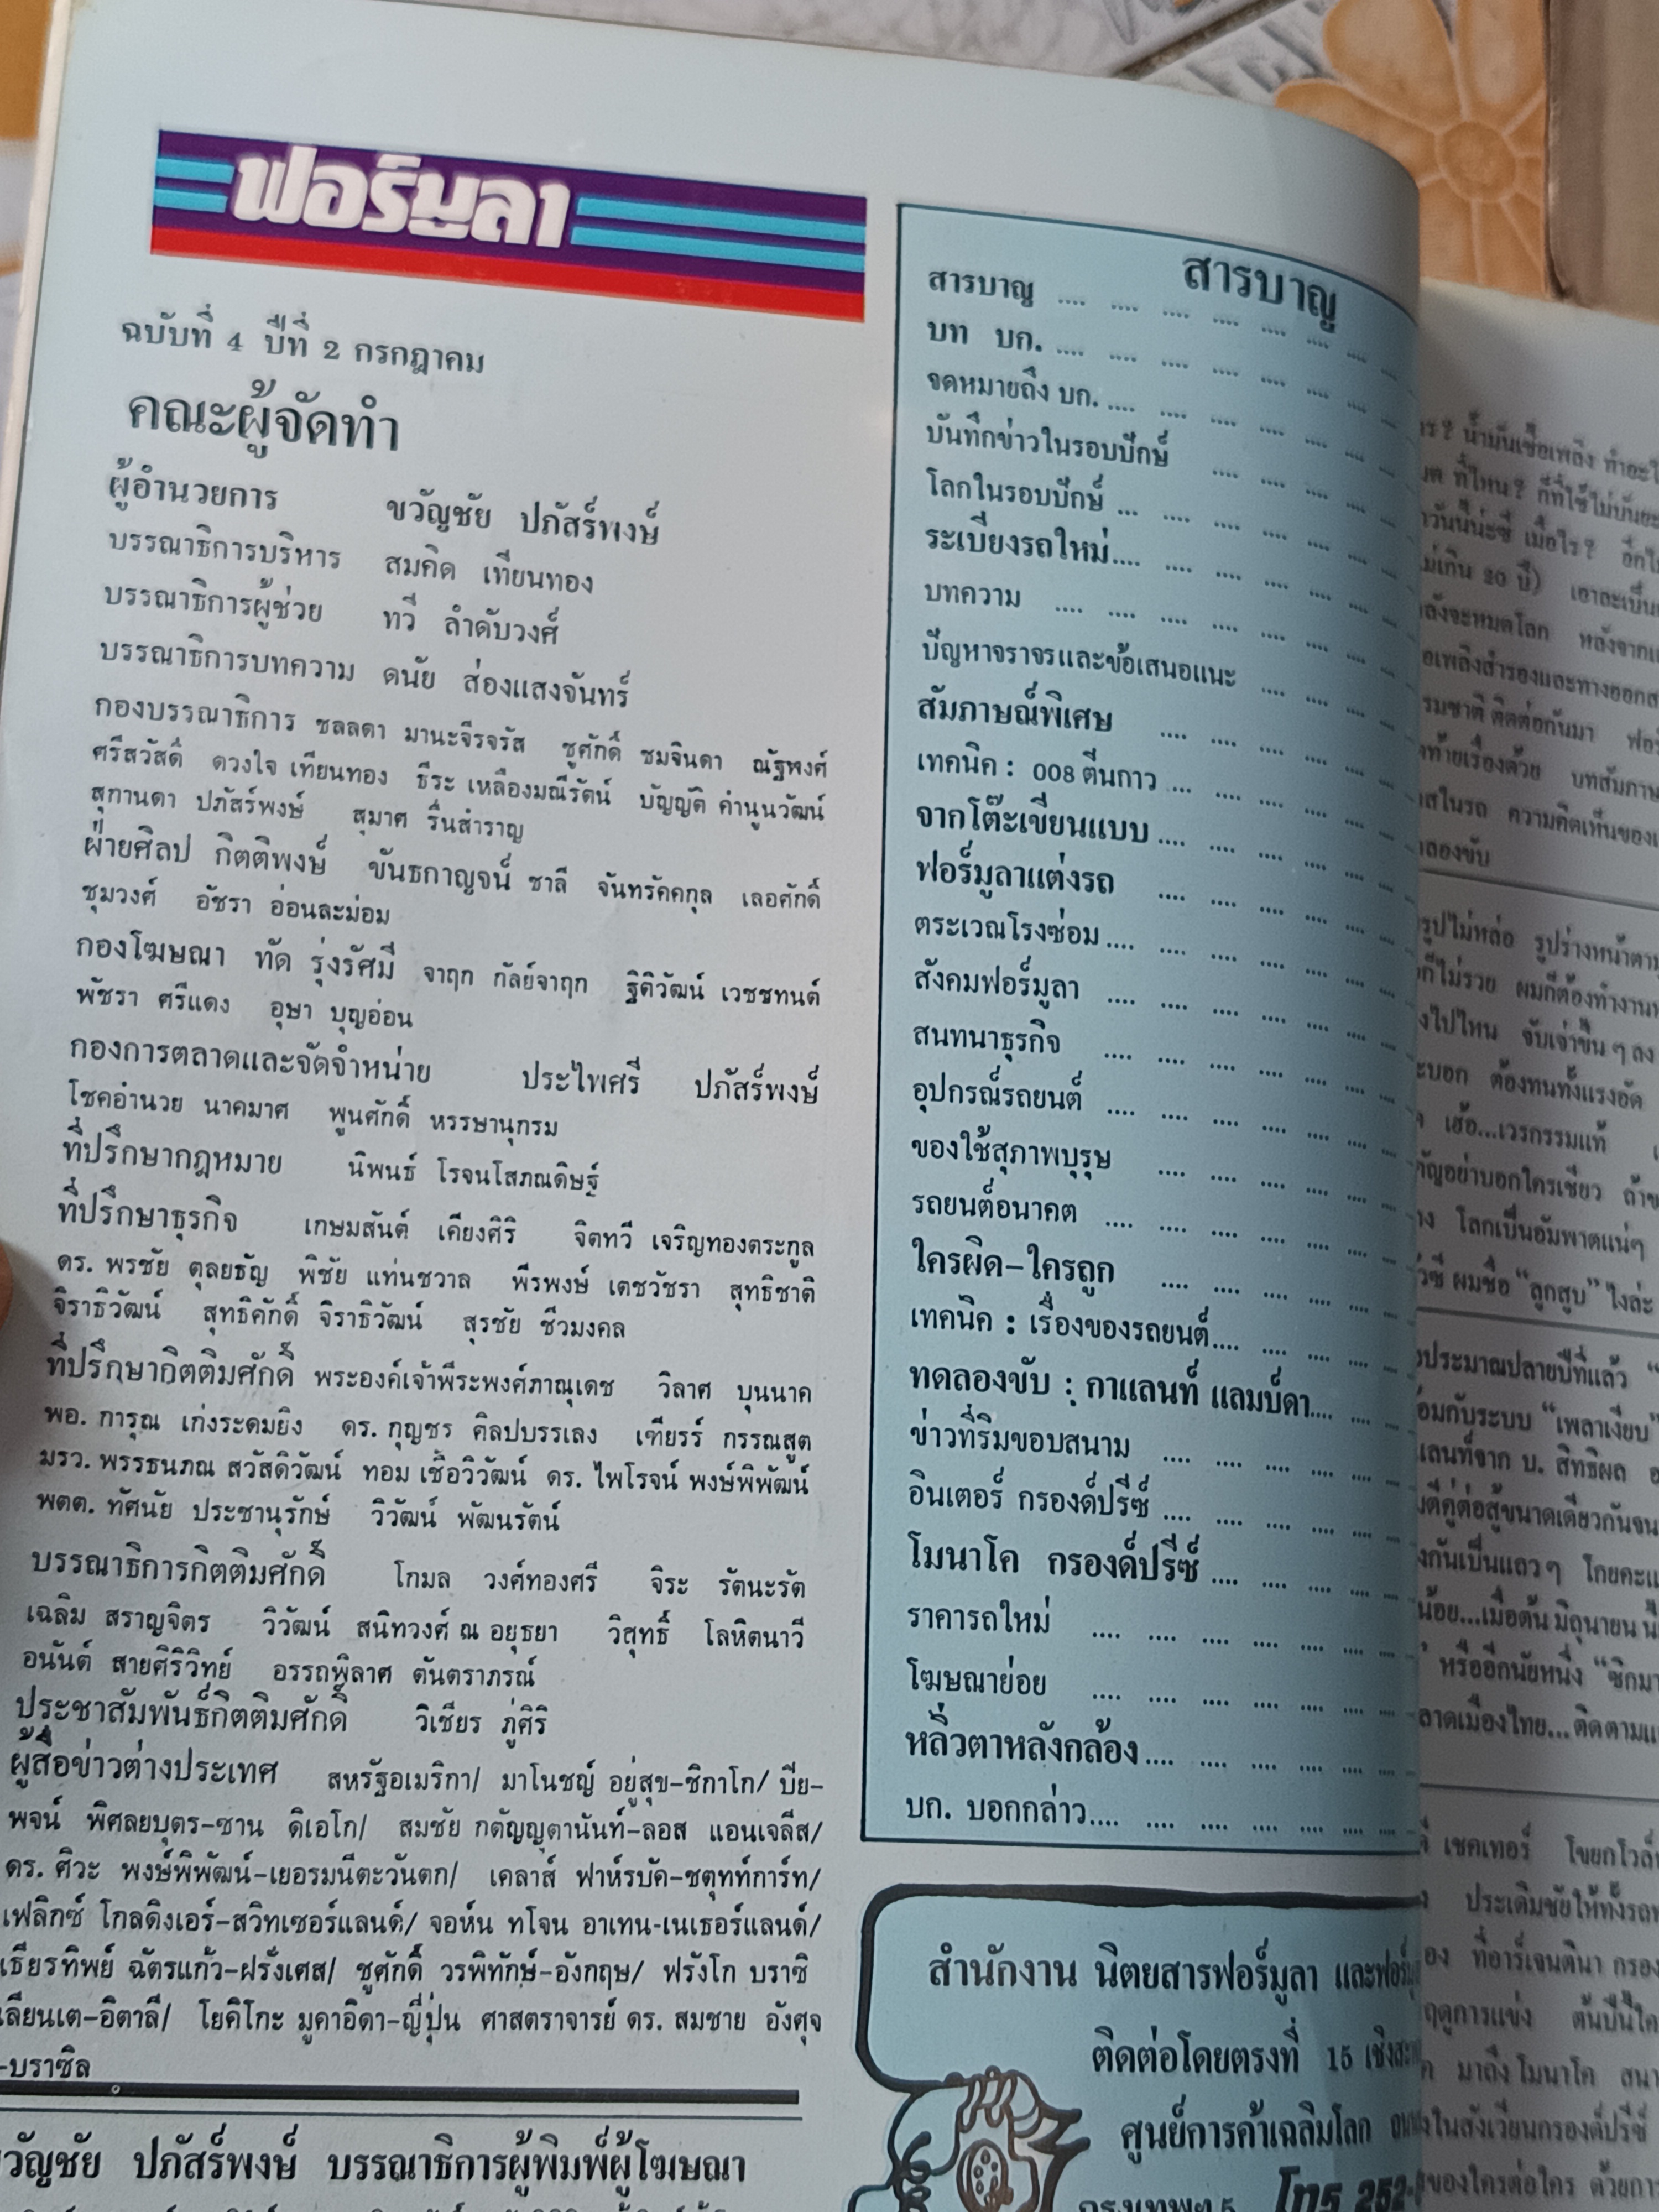 ฟอร์มูลา
ฉบับที่ 4 ปีที่ 2 กรกฎาคม
คณะผู้จัดทำ
ผู้อำนวยการ ขวัญชัย ปภัสร์พงษ์
บรรณาธิการบริหาร สมคิด เทียนทอง
บรรณาธิการผู้ช่วย ทวี ลำดับวงศ์
บรรณาธิการบทความ ดนัย ส่องแสงจันทร์
กองบรรณาธิการ ชลลดา มานะจีรจรัส ชูศักดิ์ ชมจินดา ณัฐพงศ์
ศรีสวัสดิ์ ดวงใจ เทียนทอง ธีระ เหลืองมณีรัตน์ บัญญัติ คำนูนวัฒน์
สุทานดา ปภัสร์พงษ์ สุมาศ รื่นสำราญ
ฝ่ายศิลป กิตติพงษ์ ขันธกาญจน์ ชาลี จันทรัคคกุล เลอศักดิ์
ชุมวงศ์ อัชรา อ่อนละม่อม
กองโฆษณา ทัด รุ่งรัศมี จาฤก กัลย์จาฤก ฐิติวัฒน์ เวชชทนต์
พัชรา ศรีแดง อุษา บุญอ่อน
กองการตลาดและจัดจำหน่าย ประไพศรี ปภัสร์พงษ์
โชคอำนวย นาคมาศ พูนศักดิ์ หรรษานุกรม
ที่ปรึกษากฎหมาย นิพนธ์ โรจนโสภณดิษฐ์
ที่ปรึกษาธุรกิจ เกษมสันต์ เคียงศิริ จิตทวี เจริญทองตระกูล
ดร. พรชัย ตุลยธัญ พิชัย แท่นชวาล พีรพงษ์ เตชวัชรา สุทธิชาติ
จิราธิวัฒน์ สุทธิศักดิ์ จิราธิวัฒน์ สุรชัย ชีวมงคล
ที่ปรึกษากิตติมศักดิ์ พระองค์เจ้าพีระพงศ์ภาณุเดช วิลาศ บุนนาค
พอ. การุณ เก่งระดมยิง ดร. กุญชร ศิลปบรรเลง เฑียรร์ กรรณสูต
มรว. พรรธนภณ สวัสดิวัฒน์ ทอม เชื้อวิวัฒน์ ดร. ไพโรจน์ พงษ์พิพัฒน์
พตต. ทัศนัย ประชานุรักษ์ วิวัฒน์ พัฒนรัตน์
บรรณาธิการกิตติมศักดิ์ โกมล วงศ์ทองศรี จิระ รัตนะรัต
เฉลิม สราญจิตร วิวัฒน์ สนิทวงศ์ ณ อยุธยา วิสุทธิ์ โลหิตนาวี
อนันต์ สายศิริวิทย์ อรรถพิลาศ ตันตราภรณ์
ประชาสัมพันธ์กิตติมศักดิ์ วิเชียร ภู่ศิริ
ผู้สื่อข่าวต่างประเทศ สหรัฐอเมริกา/ มาโนชญ์ อยู่สุข-ชิกาโก/ บีย-
พจน์ พิศลยบุตร-ซาน ดิเอโก/ สมชัย กตัญญุตานันท์-ลอส แอนเจลีส/
ดร. ศิวะ พงษ์พิพัฒน์-เยอรมนีตะวันตก/ เคลาส์ ฟาห์รบัค-ชตุทท์การ์ท/
เฟลิกซ์ โกลดิงเอร์-สวิทเซอร์แลนด์/ จอห์น ทโจน อาเทน-เนเธอร์แลนด์/
เธียรทิพย์ ฉัตรแก้ว-ฝรั่งเศส/ ชูศักดิ์ วรพิทักษ์-อังกฤษ/ ฟรังโก บราซิ
เลียนเต-อิตาลี/ โยคิโกะ มูคาอิดา-ญี่ปุ่น ศาสตราจารย์ ดร. สมชาย อังศุจ
-บราซิล
ขวัญชัย ปภัสร์พงษ์ บรรณาธิการผู้พิมพ์ผู้โฆษณา
สารบาญ
สารบาญ .... .... .... .... .... .... ....
บท บก. .... .... .... .... .... .... ....
จดหมายถึง บก. .... .... .... .... .... ....
บันทึกข่าวในรอบปักษ์ .... .... .... ....
โลกในรอบปักษ์ ... .... .... .... .... ....
ระเบียงรถใหม่.... .... .... .... .... ....
บทความ .... .... .... .... .... .... ....
ปัญหาจราจรและข้อเสนอแนะ .... .... ....
สัมภาษณ์พิเศษ .... .... .... .... ....
เทคนิค : 008 ตีนกาว ... .... .... .... ....
จากโต๊ะเขียนแบบ .... .... .... .... ....
ฟอร์มูลาแต่งรถ .... .... .... .... ....
ตระเวณโรงซ่อม.... .... .... .... .... ....
สังคมฟอร์มูลา .... .... .... .... .... ....
สนทนาธุรกิจ .... .... .... .... .... ....
อุปกรณ์รถยนต์ .... .... .... .... .... ....
ของใช้สุภาพบุรุษ .... .... .... .... ....
รถยนต์อนาคต .... .... .... .... .... ....
ใครผิด-ใครถูก .... .... .... .... ....
เทคนิค : เรื่องของรถยนต์.... .... .... ....
ทดลองขับ : กาแลนท์ แลมบ์ดา.... .... ....
ข่าวที่ริมขอบสนาม .... .... .... .... ....
อินเตอร์ กรองด์ปรีซ์ .... .... .... .... ....
โมนาโค กรองด์ปรีซ์ .... .... .... .... ....
ราคารถใหม่ .... .... .... .... .... ....
โฆษณาย่อย .... .... .... .... .... ....
หลิ่วตาหลังกล้อง.... .... .... .... ....
บก. บอกกล่าว.... .... .... .... .... ....
สำนักงาน นิตยสารฟอร์มูลา และ
ติดต่อโดยตรงที่ 15
ศูนย์การค้าเฉลิมโลก
กรุงเทพฯ 5 โทร 252-
น้ำมันเชื้อเพลิง
ที่ไหน? ก็ที่ใช้
วันนี้น่ะซี เมื่อไร?
ไม่เกิน 20 ปี) เอาละ
หมดโลก หลังจาก
สำรองและทางออก
ติดต่อกันมา
ท้ายเรื่องด้วย
ในรถ ความคิดเห็นของ
ลองขับ
รูปไม่หล่อ รูปร่างหน้าตา
ก็ไม่รวย ผมก็ต้องทำงาน
ไปไหน จับเจ่าขึ้น ๆ ลง
ต้องทนทั้งแรงอัด
เฮ้อ...เวรกรรมแท้
อย่าบอกใครเชียว
โลกเป็นอัมพาตแน่ๆ
ผมชื่อ "ลูกสูบ" ไงล่ะ
ประมาณปลายปีที่แล้ว
กับระบบ "เพลาเงียบ"
จาก บ. สิทธิผล
คู่ต่อสู้ขนาดเดียวกันจน
กันเป็นแถว ๆ โดยคะแ
น้อย...เมื่อต้น มิถุนายน
หรืออีกนัยหนึ่ง
เมืองไทย...ติดตาม
เชคเทอร์
ประเดิมชัยให้ทั้งรถ
ที่อาร์เจนตินา กรอง
ฤดูการแข่ง ต้นปีนี้
มาถึง โมนาโค สนา
ในสังเวียนกรองด์ปรีซ์
ของใครต่อใคร ด้วยการ